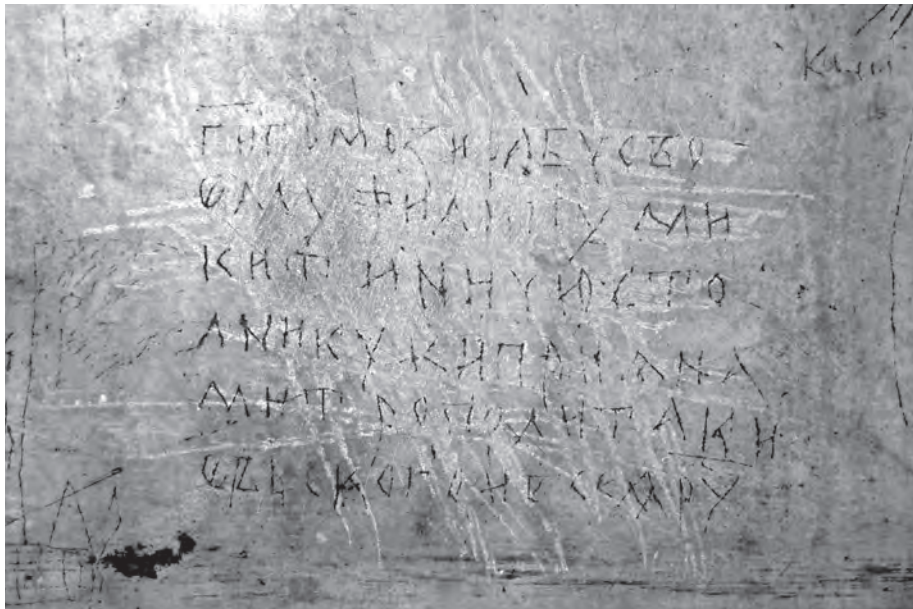 Г҃И ПОМОЗИ РАБУ СВО
ЄМУ ФИЛИПУ МИ
КИТИНИЧЮ СТО
ЛНИКУ КИПРИѦНА
МИТРОПОЛИТА КИ
ЄВЬСКОГО И ВСЕѦ РУ